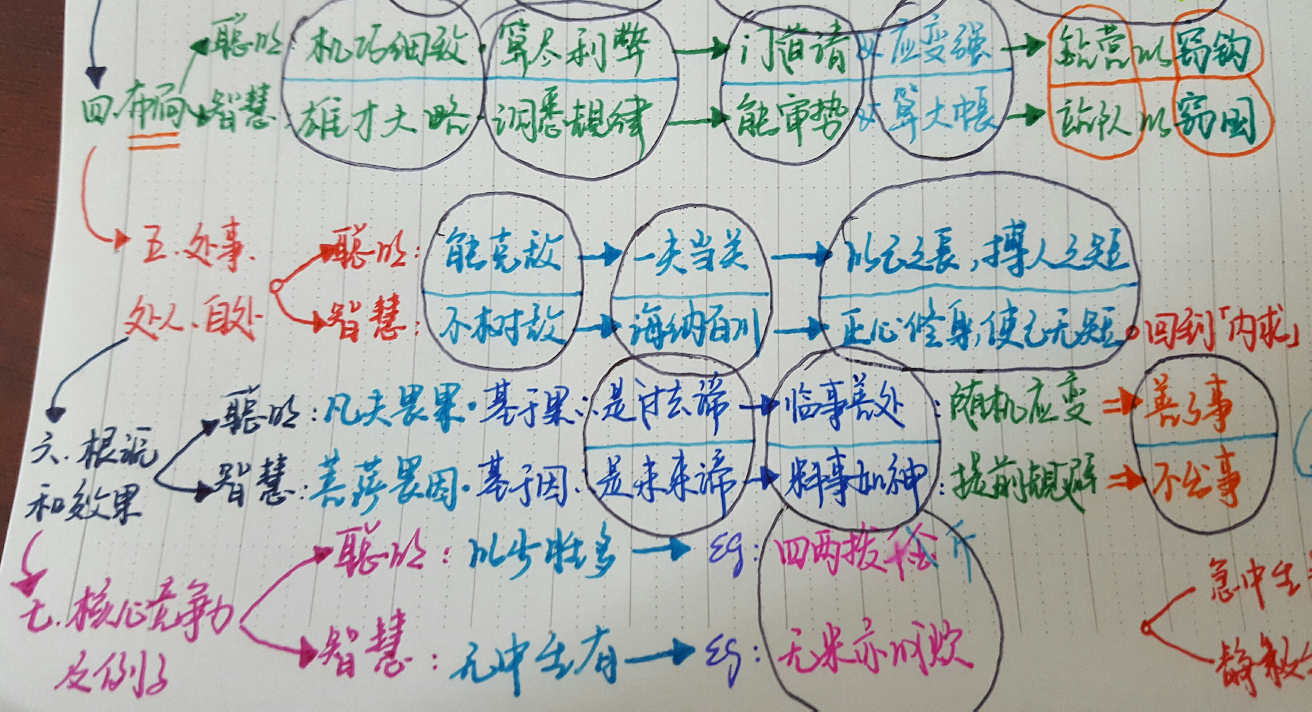 聪明:机巧细致·算尽利弊→门道清以应变强→钻营以窃钩
四.布局
智慧:雄才大略·洞悉规律→能审势以算大帐→站队以窃国
五.处事.
聪明:能克敌→一夫当关→以己之長,搏人之短
处人.自处
智慧:不树敌→海纳百川→正心修身,使己无短。回到「内求」
聪明:凡夫畏果·基于果∴是过去谛→临事善处:随机应变⇒善了事
六.根源
和效果
智慧:菩萨畏因·基于因.是未来谛→料事如神:提前规避⇒不出事
聪明:以少胜多→eg:四两拨千斤
七.核心竞争力
及例子
智慧:无中生有→eg:无米亦可炊
急中生
静